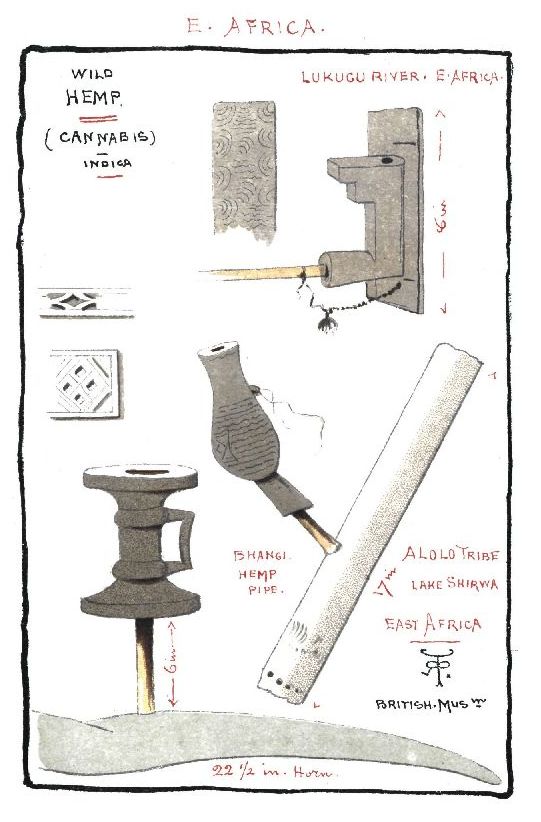 E. AFRICA.
WILD
HEMP.
(CANNABIS)
INDICA
LUKUGU RIVER. E. AFRICA.
6 in
BHANGI.
HEMP
PIPE.
ALOLO TRIBE
LAKE SHIRWA
EAST AFRICA
BRITISH. MUSM
6 in
22 1/2 in. Horn.